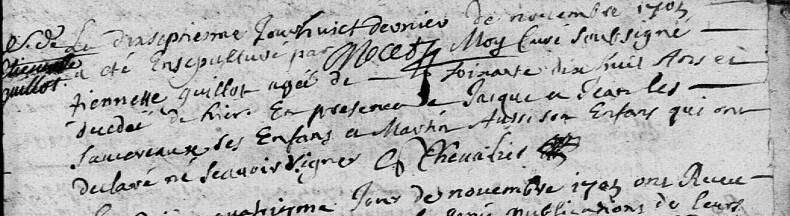 S. de
Etiennette
Guillot
Le Dixseptieme Jour huict dernier de novembre 1705
a été Ensepulturé par Moy Curé Soubsigné
tiennette Guillot agée de Soixante dix huit Ans et
ducdée de hier En presence de Jasque et Jean les
Sauvereaux ses Enfans et Martin Aussi son Enfans qui ont
declaré né Scavoir Signer Chevalier
Jour de novembre 1705 ont Receu
publications de leurs